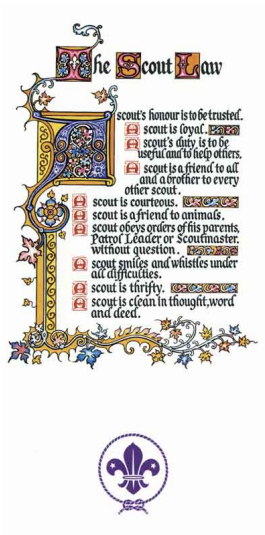 The Scout Law
A scout's honour is to be trusted.
A scout is loyal.
A scout's duty is to be
useful and to help others.
A scout is a friend to all
and a brother to every
other scout.
A scout is courteous.
A scout is a friend to animals.
A scout obeys orders of his parents,
Patrol Leader or Scoutmaster
without question.
A scout smiles and whistles under
all difficulties.
A scout is thrifty.
A scout is clean in thought, word
and deed.